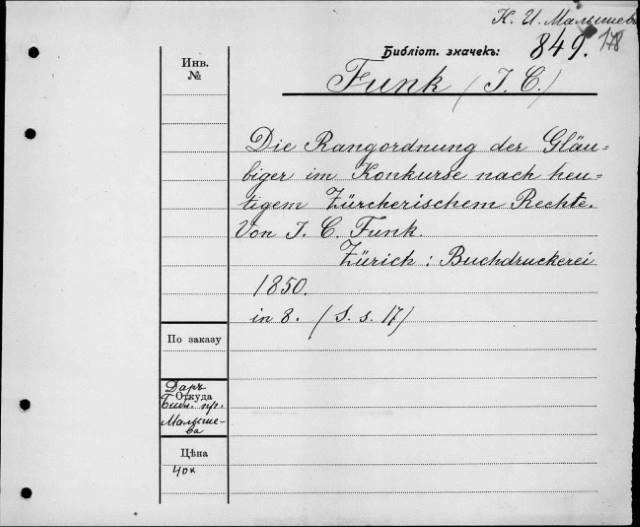 К. И. Малышевъ
Библіот. значекъ: 849. 178
Инв.
№
Funk (I. C.)
Die Rangordnung der Gläu-
biger im Konkurse nach heu-
tigem Zürcherischem Rechte.
Von I. C. Funk.
Zürich: Buchdruckerei
1850.
in 8. (S. s. 17)
По заказу
Даръ
Откуда
Библ. пр.
Малыше-
ва
Цѣна
40к